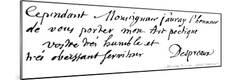 Cependant Monseigneur j'auray l'honneur
de vous porter mon Art poetique
vostre trés humble et
trés obeissant serviteur Despreaux